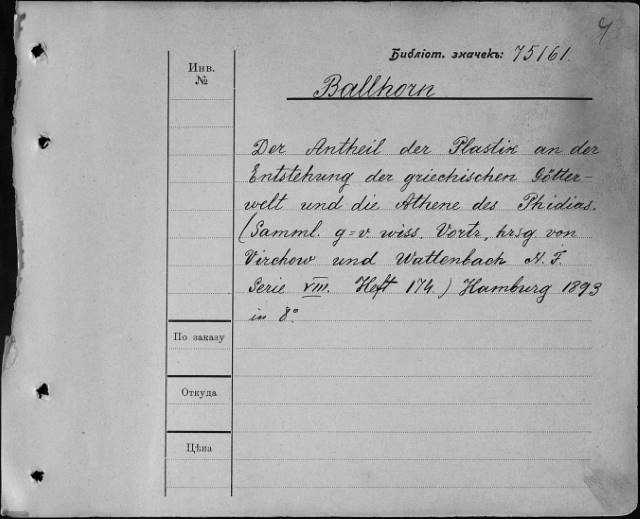 4
Библіот. значекъ: 75161.
Инв.
№
Ballhorn
Der Antheil der Plastik an der
Entstehung der griechischen Götter-
welt und die Athene des Phidias.
(Samml. g=v. wiss. Vortr, hrsg. von
Virchow und Wattenbach N. F.
Serie VIII. Heft 174.) Hamburg 1893
in 8°.
По заказу
Откуда
Цѣна